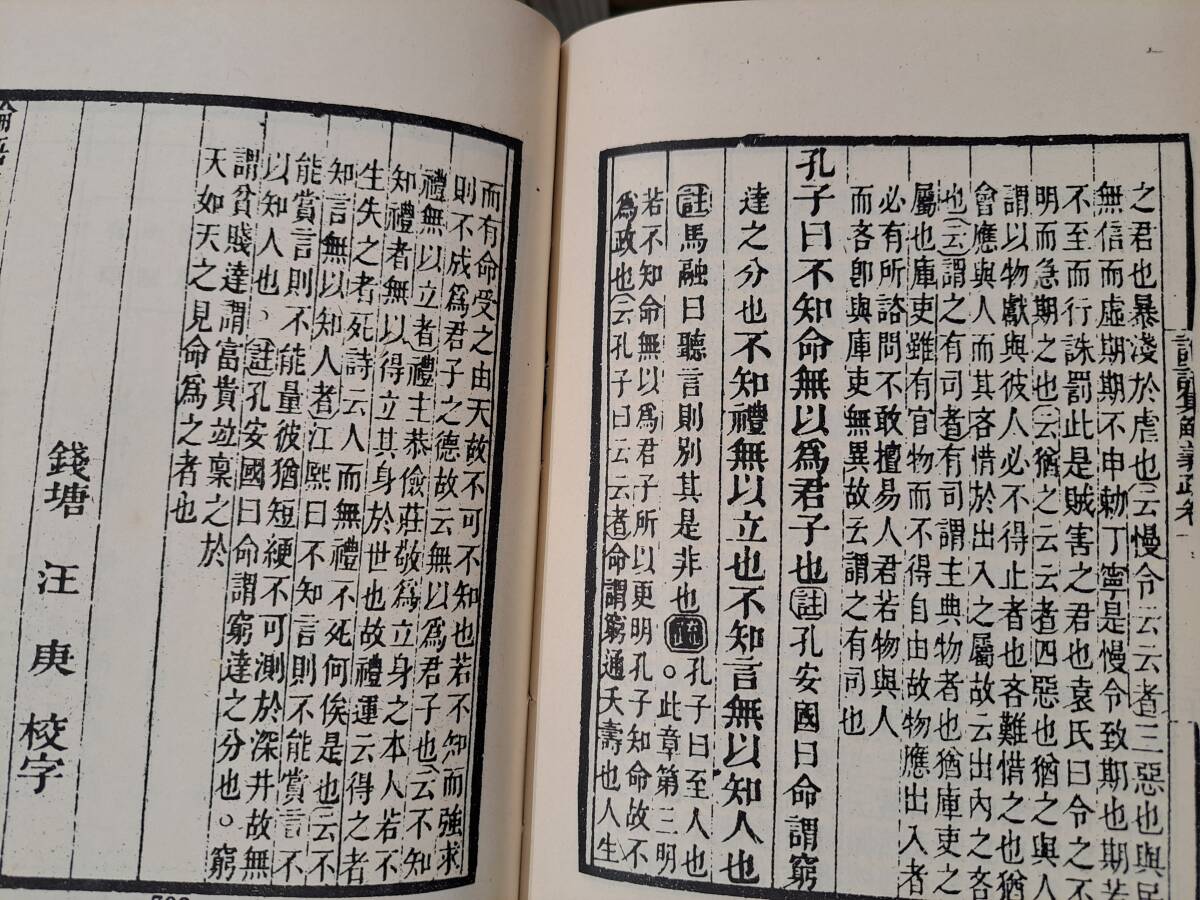 之君也暴淺於虐也云慢令云云者三惡也與民
無信而虛期期不申勅丁寧是慢令致期也期若
不至而行誅罰此是賊害之君也袁氏曰令之不
明而急期之也云猶之云云者四惡也猶之與人
謂以物獻與彼人必不得止者也吝難惜之也猶
會應與人而其吝惜於出入之屬故云出內之吝
也云謂之有司者有司謂主典物者也猶庫吏之
屬也庫吏雖有官物而不得自由故物應出入者
必有所諮問不敢擅易人君若物與人
而吝卽與庫吏無異故云謂之有司也
孔子曰不知命無以爲君子也註孔安國曰命謂窮
達之分也不知禮無以立也不知言無以知人也
註馬融曰聽言則別其是非也疏孔子曰至人也
。此章第三明
若不知命無以爲君子所以更明孔子知命故不
爲政也云孔子曰云云者命謂窮通夭壽也人生
而有命受之由天故不可不知也若不知而強求
則不成爲君子之德故云無以爲君子也云不知
禮無以立者禮主恭儉莊敬爲立身之本人若不
知禮者無以得立其身於世也故禮運云得之者
生失之者死詩云人而無禮不死何俟是也云不
知言無以知人者江熙曰不知言則不能賞言不
能賞言則不能量彼猶短綆不可測於深井故無
以知人也。註孔安國曰命謂窮達之分也。窮
謂貧賤達謂富貴竝稟之於
天如天之見命爲之者也
錢塘 汪庚 校字